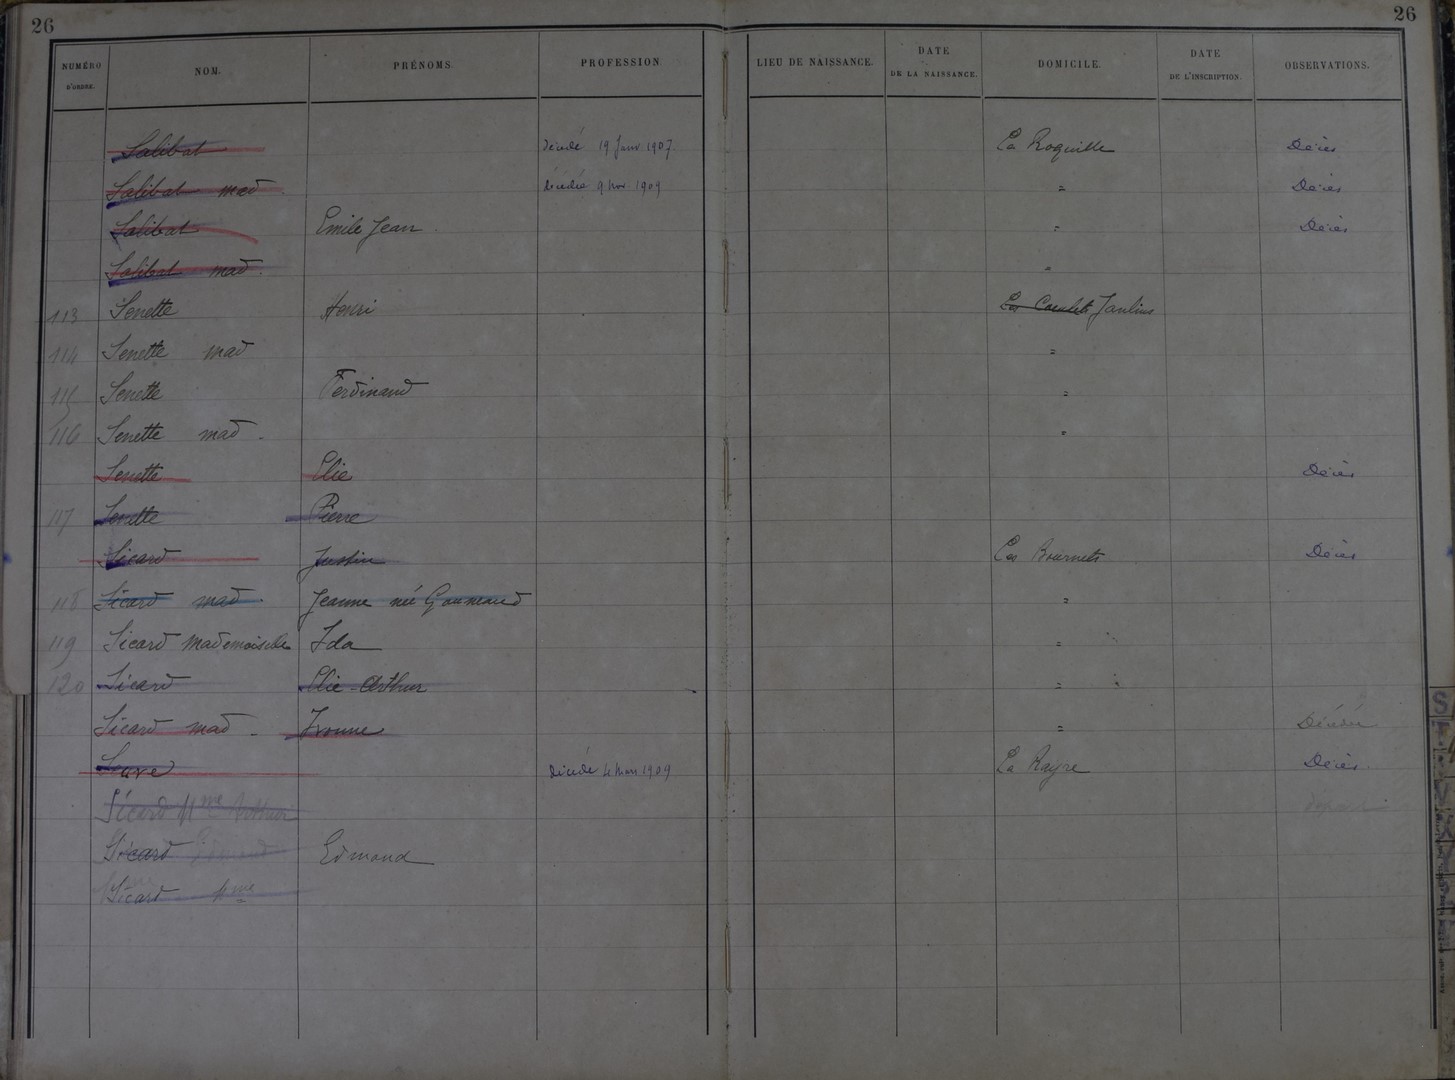 26 26
NUMÉRO D'ORDRE. NOM. PRÉNOMS. PROFESSION. LIEU DE NAISSANCE. DATE DE LA NAISSANCE. DOMICILE. DATE DE L'INSCRIPTION. OBSERVATIONS.
Salibat décédé 19 Janv 1907. La Roquille Décès
Salibat mad décédée 9 Nov. 1909 " Décès
Salibat Emile Jean. " Décès
Salibat mad. "
113 Senette Henri Les Jaulins
114 Senette mad "
115 Senette Ferdinand "
116 Senette mad. "
Senette Elie Décès
117 Senette Pierre
Sicard Justin Les Bournets Décès
118 Sicard mad. Jeanne née "
119 Sicard mademoiselle Ida "
120 Sicard Elie-Arthur "
Sicard mad. Ivonne " Décédée
décédé 4 Mars 1909 La Rayre Décès.
Sicard Mme Arthur
Sicard Edmond Edmond
Sicard Mme